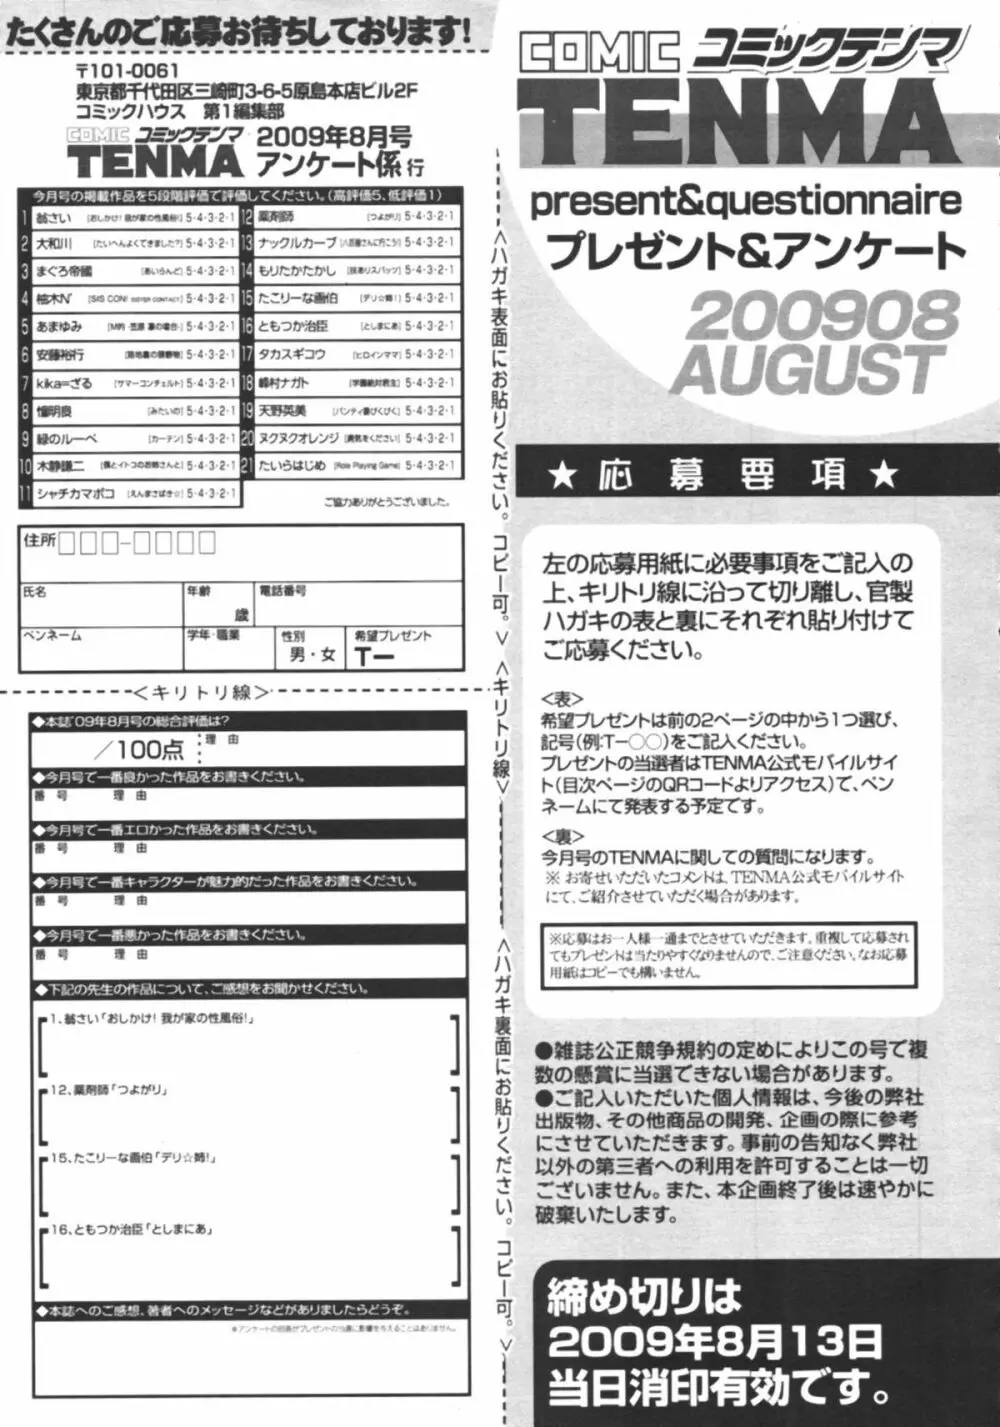 たくさんのご応募お待ちしております!
〒101-0061
東京都千代田区三崎町3-6-5原島本店ビル2F
コミックハウス　第1編集部
COMIC コミックテンマ
TENMA
2009年8月号
アンケート係 行
今月号の掲載作品を5段階評価で評価してください。(高評価5、低評価1)
1 翁さい [おしかけ! 我が家の性風俗!] 5・4・3・2・1
2 大和川 [たいへんよくてきました?] 5・4・3・2・1
3 まぐろ帝國 [あいらんど] 5・4・3・2・1
4 柚木N' [SIS CON! SISTER CONTACT] 5・4・3・2・1
5 あまゆみ 5・4・3・2・1
6 安藤裕行 5・4・3・2・1
7 kika=ざる [サマーコンチェルト] 5・4・3・2・1
8 憧明良 [みたいの] 5・4・3・2・1
9 緑のルーペ [カーテン] 5・4・3・2・1
10 木静謙二 [僕とイトコのお姉さんと] 5・4・3・2・1
11 シャチカマボコ [えんまさばき☆] 5・4・3・2・1
12 薬剤師 [つよがり] 5・4・3・2・1
13 ナックルカーブ [八百屋さんに行こう!] 5・4・3・2・1
14 もりたかたかし [技ありスパッツ] 5・4・3・2・1
15 たこりーな画伯 [デリ☆姉!] 5・4・3・2・1
16 ともつか治臣 [としまにあ] 5・4・3・2・1
17 タカスギコウ [ヒロインママ] 5・4・3・2・1
18 峰村ナガト [学園絶対君主] 5・4・3・2・1
19 天野英美 [パンティ番びくびく] 5・4・3・2・1
20 ヌクヌクオレンジ [勇気をください] 5・4・3・2・1
21 たいらはじめ [Role Playing Game] 5・4・3・2・1
ご協力ありがとうございました。
住所 □□□-□□□□
氏名
年齢
歳
電話番号
ペンネーム
学年・職業
性別
男・女
希望プレゼント
T－
＜キリトリ線＞
◆本誌'09年8月号の総合評価は?
／100点
理由
◆今月号で一番良かった作品をお書きください。
番号　理由
◆今月号で一番エロかった作品をお書きください。
番号　理由
◆今月号で一番キャラクターが魅力的だった作品をお書きください。
番号　理由
◆今月号で一番悪かった作品をお書きください。
番号　理由
◆下記の先生の作品について、ご感想をお聞かせください。
1、翁さい「おしかけ! 我が家の性風俗!」
12、薬剤師「つよがり」
15、たこりーな画伯「デリ☆姉!」
16、ともつか治臣「としまにあ」
◆本誌へのご感想、著者へのメッセージなどがありましたらどうぞ。
※アンケートの回答がプレゼントの当選に影響を与えることはありません。
＜ハガキ表面にお貼りください。コピー可。＞
＜キリトリ線＞
＜ハガキ裏面にお貼りください。コピー可。＞
COMIC コミックテンマ
TENMA
present&questionnaire
プレゼント&アンケート
200908
AUGUST
★応募要項★
左の応募用紙に必要事項をご記入の
上、キリトリ線に沿って切り離し、官製
ハガキの表と裏にそれぞれ貼り付けて
ご応募ください。
＜表＞
希望プレゼントは前の2ページの中から1つ選び、
記号(例:T－○○)をご記入ください。
プレゼントの当選者はTENMA公式モバイルサイ
ト(目次ページのQRコードよりアクセス)で、ペン
ネームにて発表する予定です。
＜裏＞
今月号のTENMAに関しての質問になります。
※ お寄せいただいたコメントは、TENMA公式モバイルサイト
にて、ご紹介させていただく場合があります。
※応募はお一人様一通までとさせていただきます。重複して応募され
てもプレゼントは当たりやすくなりませんので、ご注意ください。なお応募
用紙はコピーでも構いません。
●雑誌公正競争規約の定めによりこの号で複
数の懸賞に当選できない場合があります。
●ご記入いただいた個人情報は、今後の弊社
出版物、その他商品の開発、企画の際に参考
にさせていただきます。事前の告知なく弊社
以外の第三者への利用を許可することは一切
ございません。また、本企画終了後は速やかに
破棄いたします。
締め切りは
2009年8月13日
当日消印有効です。